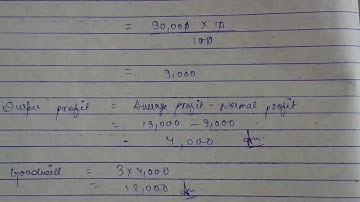 = 90,000 × 10
100
= 9,000
Super profit = Average profit - Normal profit
= 13,000 - 9,000
= 4,000 Ans
Goodwill = 3 × 4,000
= 12,000 Ans